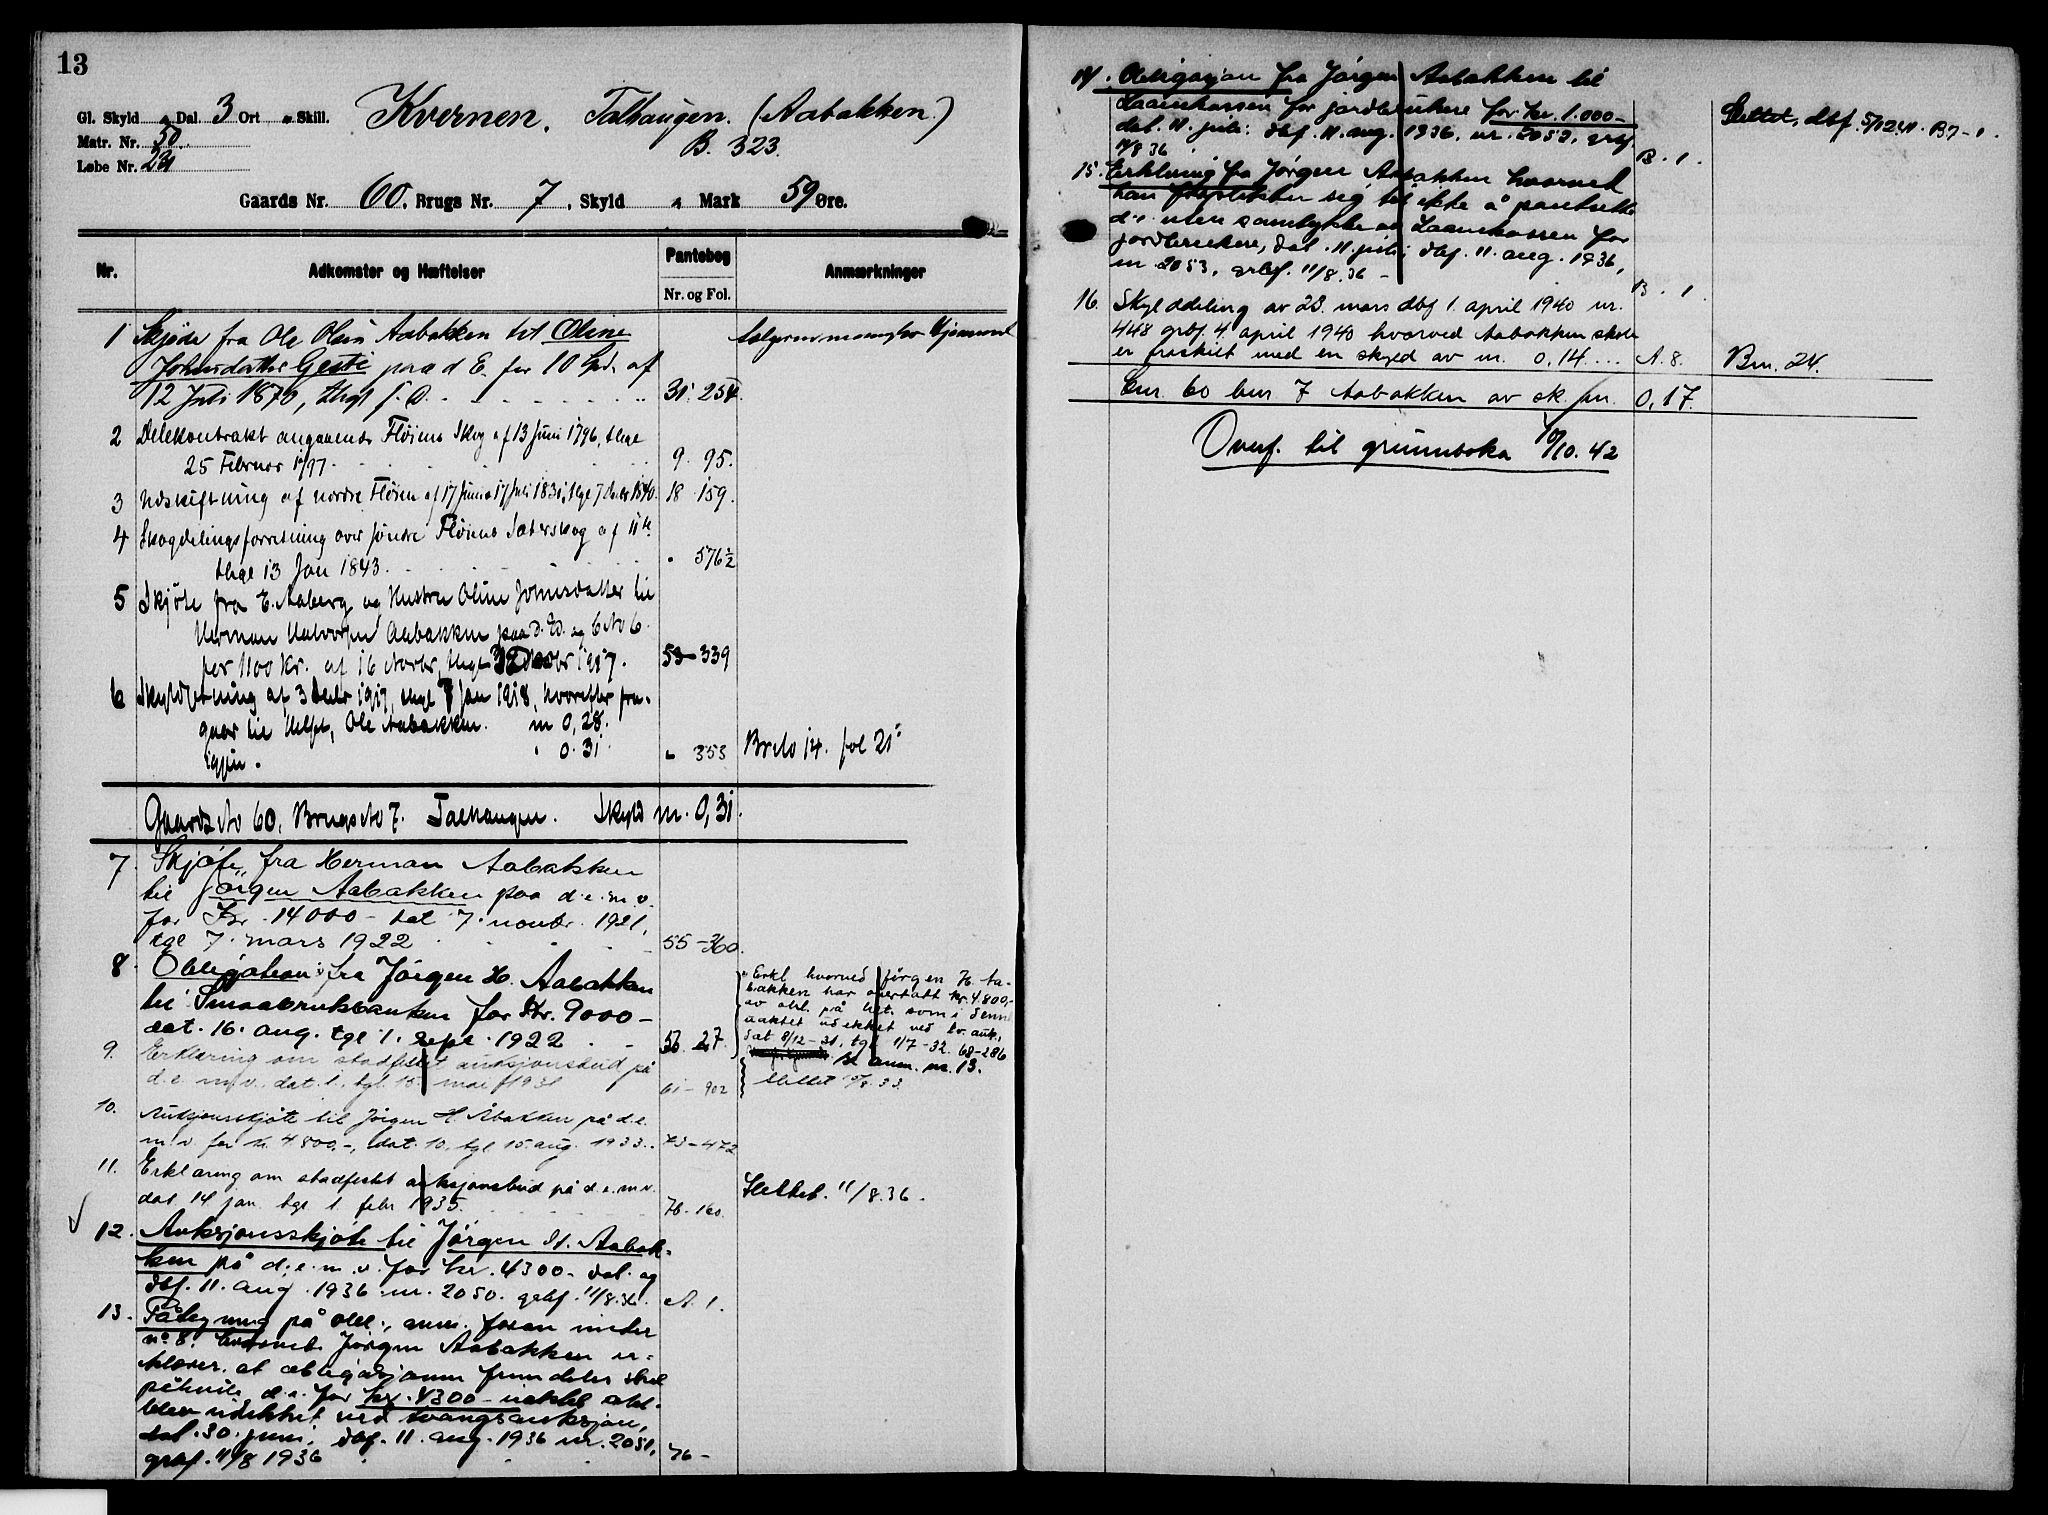 13
Gl. Skyld " Dal. 3 Ort " Skill.
Matr. Nr. 50
Løbe Nr.
Kvernen. Talhaugen. (Aabakken)
B. 323.
Gaards Nr. 60, Brugs Nr. 7, Skyld " Mark 59 Øre.
Nr. Adkomster og Hæftelser Pantebog Anmærkninger
Nr. og Fol.
1 Skjøde fra Ole Olsen Aabakken til Oline
Johnsdatter Gjeste paa d E. for 10 Spd. af
12 Juli 1870, thgl s. D. 31. 254.
2 Delekontrakt angaaende Fløiens Skog af 13 Juni 1796, thgl
25 Februar 1797. 9. 95.
3 Udskiftning af nordre Fløien af 17 Juni a 17 Juli 1831, thgl 7 Decbr 1840. 18 159.
4 Skogdelingsforretning over søndre Fløiens Sæterskog af 11te
thgl 13 Jan 1843. " 576½
5 Skjøte fra E. Aaberg og Hustru Oline Johnsdatter til
Herman Halvorsen Aabakken paa d. Ed. og B No 6
for 1100 Kr. af 16 Novbr, thgl Decbr 1917. 53-339
6 Skyldsetning af 3 Decbr 1917, thgl Jan 1918, hvorefter fra-
gaar til Ole Aabakken. m 0,28.
Igjen. " 0.31 " 353 Br No 14. fol 21
Gaards No 60, Brugs No 7. Talhaugen. Skyld m. 0,31.
7. Skjøte fra Herman Aabakken
til Jørgen Aabakken paa d. e. m. v.
for Kr. 14000- dat 7. novbr. 1921,
tgl 7. mars 1922 55-360.
8. Obligation fra Jørgen H. Aabakken
til Smaabrukbanken for Kr. 9000-
dat. 16. aug. tgl 1. sept. 1922 56. 27.
Erkl hvorved Jørgen H. Aa-
bakken har overtatt kr. 4.800,-
av obl. på het. som i denne
uaktet udekket ved tv. auk.,
dat 8/12-31, tgl 1/7-32. 68-286
Se anm. nr. 13.
9. Erklæring om stadfestet auksjonsbud på
d. e. m. v. dat. 1. tgl. 15. mai 1931 61-902
Slettet
10. Auksjonsskjøte til Jørgen H. Åbakken på d. e.
m. v. for kr. 4.800,-, dat. 10, tgl 15 aug. 1933. 73-472
11. Erklæring om stadfestet auksjonsbud på d. e. m. v.
dat 14 jan. tgl 1. febr 1935. 76-160. Slettet. 11/8.36.
12. Auksjonsskjøte til Jørgen H. Aabak-
ken på d. e. m. v. for kr. 4300- dat. og
dbf. 11. aug. 1936 nr. 2050. grbf. 11/8.36. A. 1.
13. Påtegning på obl., anm. foran under
nr 8, hvorved Jørgen Aabakken er-
klærer at obligasjonen fremdeles skal
påhvile d. e. for kr. 4300- uaktet obl.
blev udekket ved tvangsauksjon,
dat. 30. juni, dbf. 11. aug. 1936 nr. 2051,
grbf. 11/8 1936 76-
14. Obligasjon fra Jørgen Aabakken til
Laanekassen for jordbrukere for kr. 1.000-
dat. 11. juli, dbf. 11. aug. 1936, nr. 2052, grbf.
11/8 36 B. 1. Slettet, dbf. B7-1.
15. Erklæring fra Jørgen Aabakken hvorved
han forplikter sig til ikke å pantsette
d. e. uten samtykke av Laanekassen for
jordbrukere, dat. 11. juli, dbf. 11. aug. 1936,
nr 2053, grbf. 11/8.36 - B. 1.
16. Skylddeling av 28. mars dbf 1. april 1940 nr.
448 grbf. 4. april 1940 hvorved Aabakken skole
er fraskilt med en skyld av m. 0,14 A. 8. Bnr. 24.
Gnr. 60 bnr 7 Aabakken av sk. m. 0,17.
Overf. til grunnboka 10/10.42